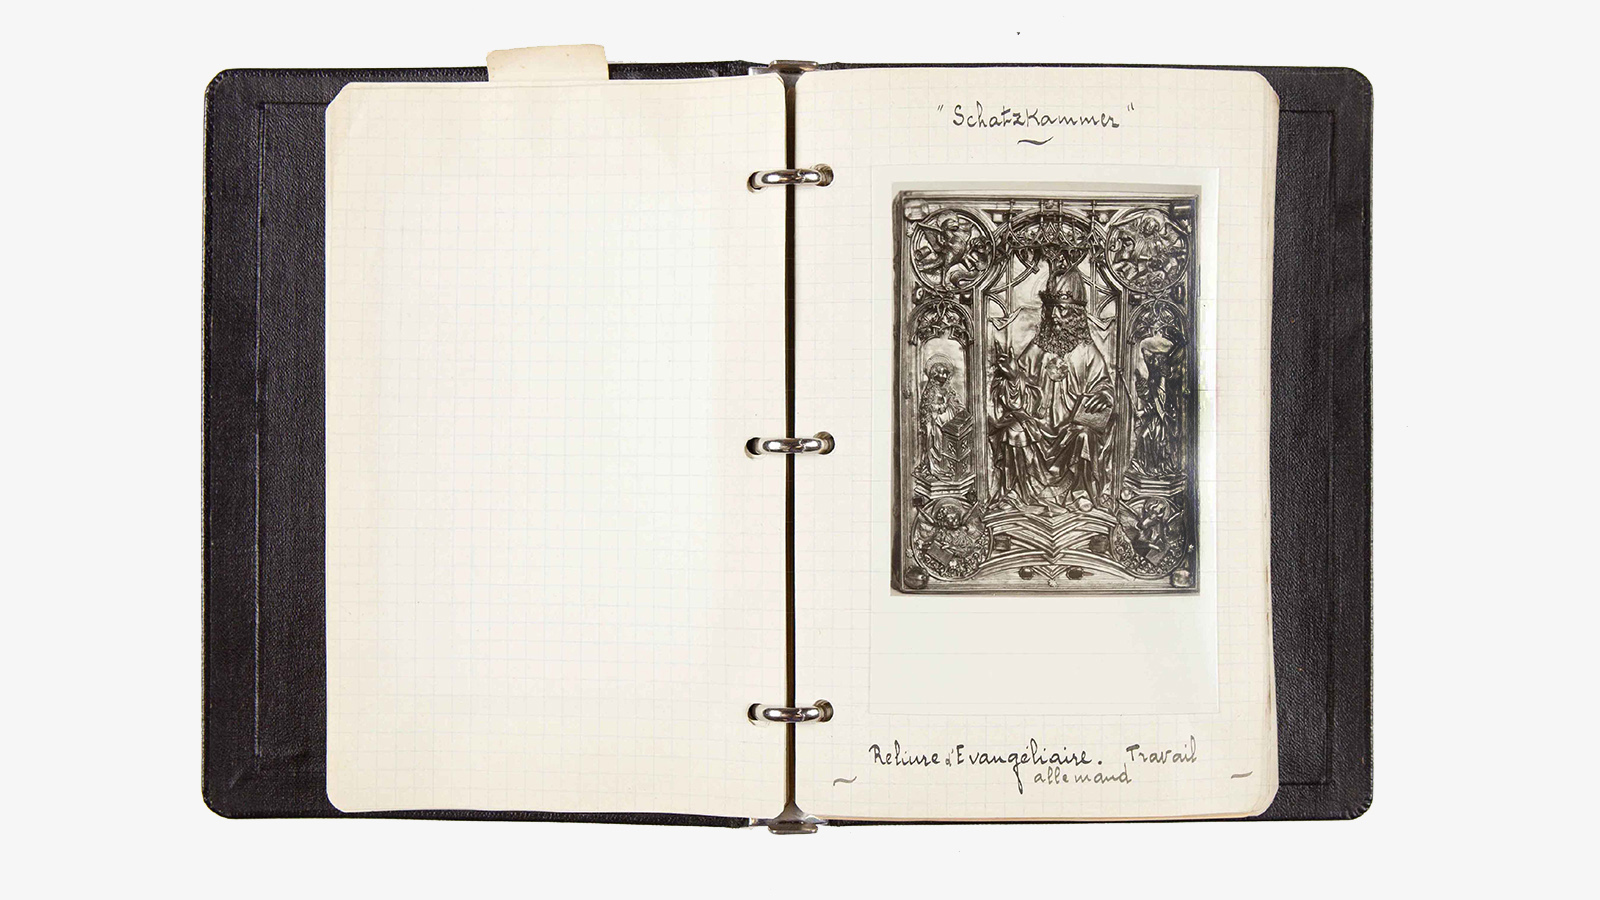 "Schatzkammer"
Reliure d'Evangéliaire. Travail
allemand